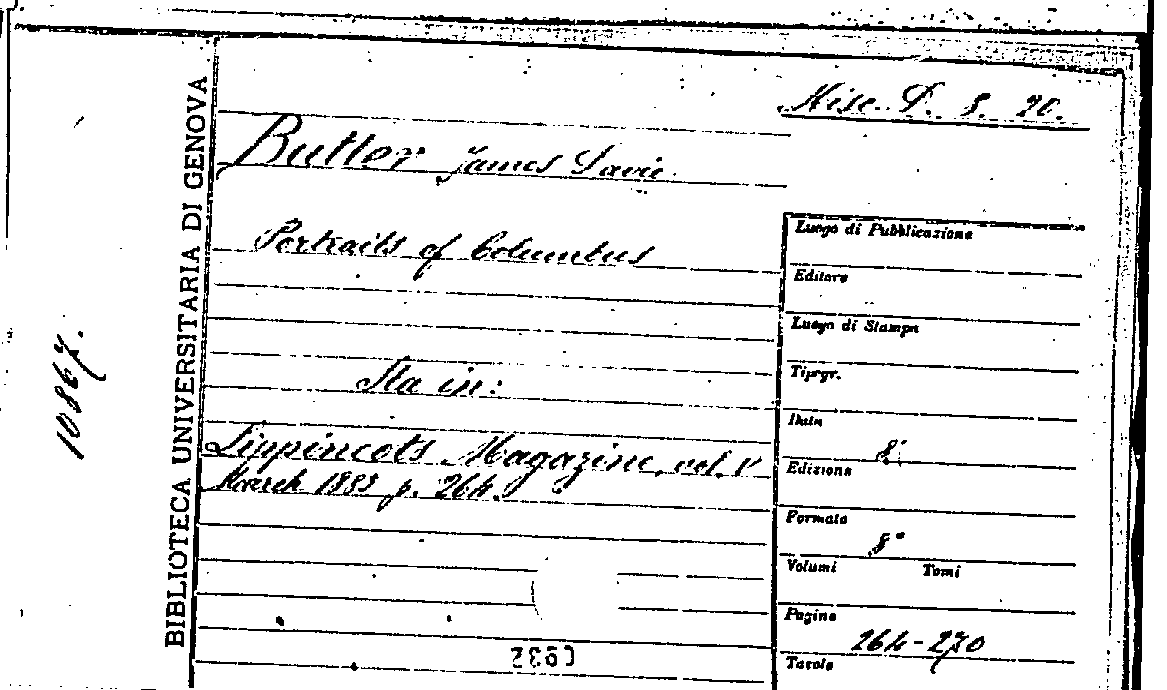 Misc. D. 8. 20.
Butler James Davie
Portraits of Columbus
Sta in:
Lippincots Magazine, vol. V
March 1883 p. 264.
10867.
BIBLIOTECA UNIVERSITARIA DI GENOVA
Luogo di Pubblicazione
Editore
Luogo di Stampa
Tipogr.
Data
Edizione
Formato
8°
Volumi Tomi
Pagine
264-270
Tavole